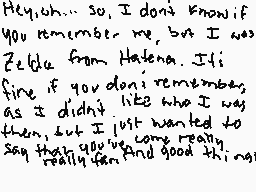 Hey, uh... so, I don't know if
you remember me, but I was
Zelda from Hatena. It's
fine if you don't remember,
as I didn't like who I was
then, but I just wanted to
say that you've come really
really far. And good things